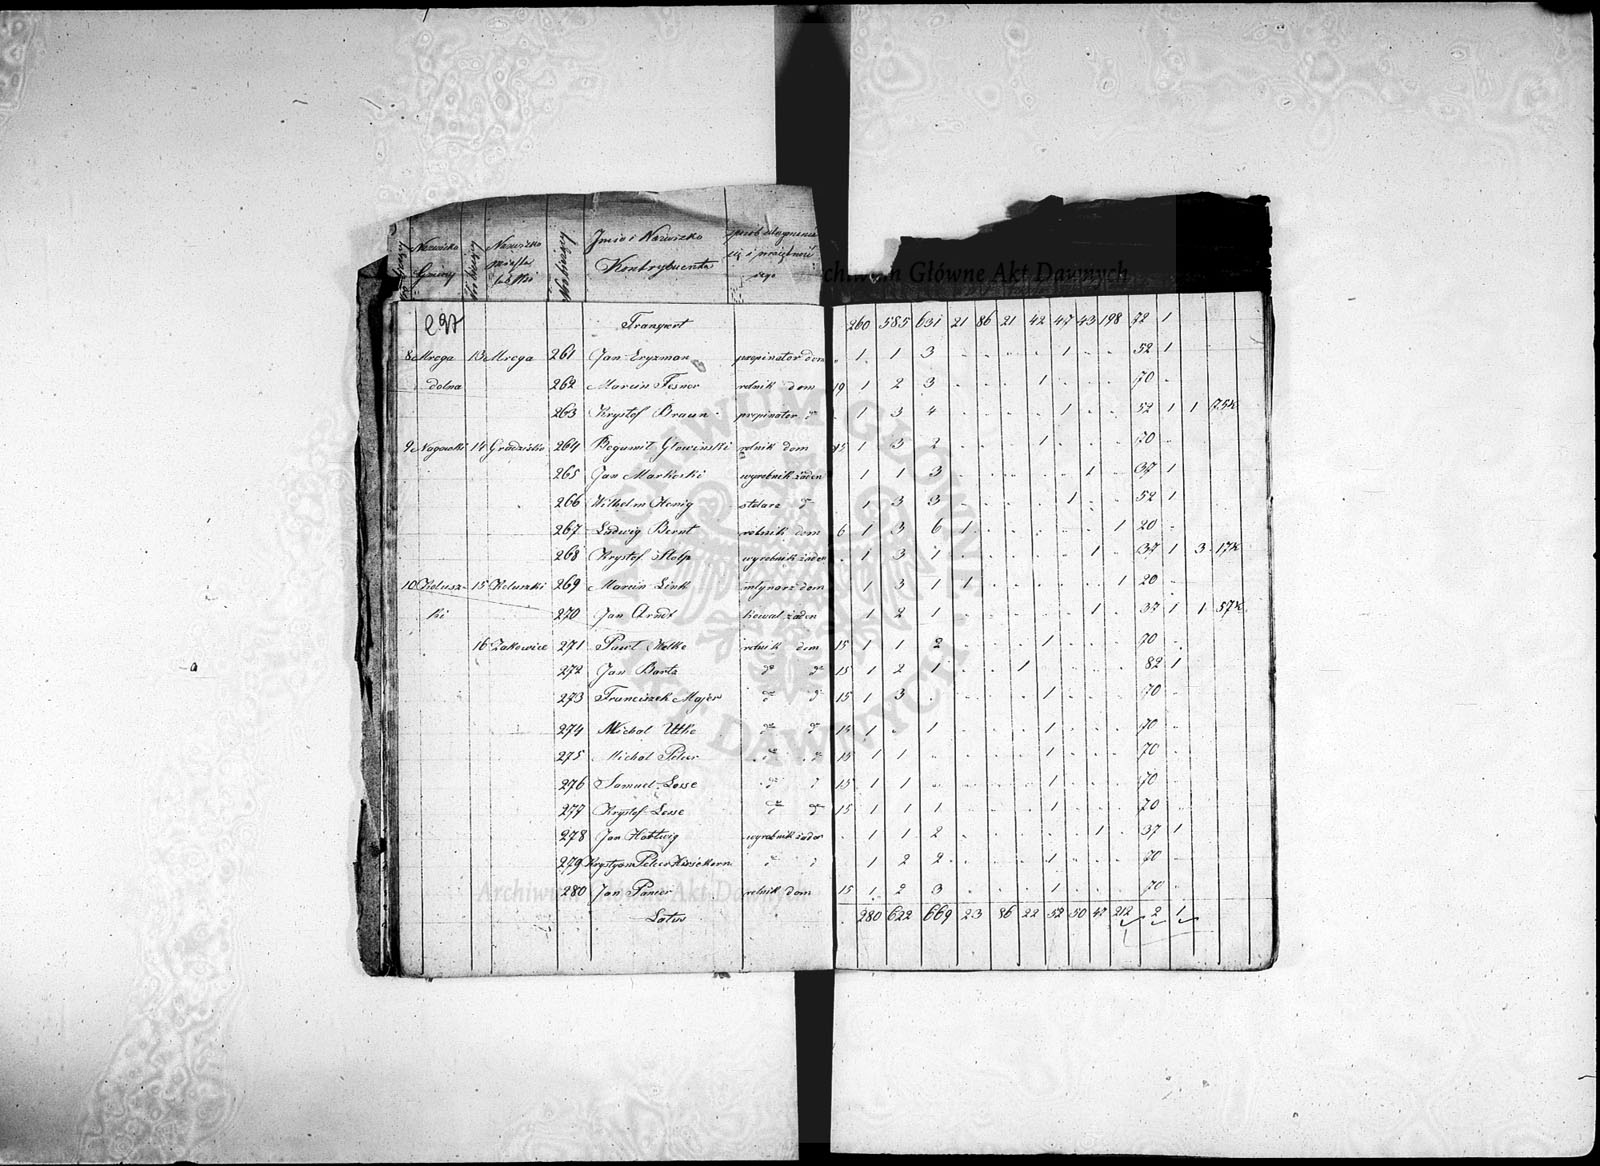 Nazwisko Gminy Nazwisko miasta lub Wsi Jmie i Nazwisko Kontrybuenta
Archiwum Główne Akt Dawnych
237 Transport 260 585 631 21 86 21 42 47 43 198 72 1
8 Mroga 13 Mroga 261 Jan Eryzman propinator dom 1 1 3 . . . . 1 . . 52 1
dolna 262 Marcin Fesner rolnik dom 19 1 2 3 . . . 1 . . . 70 .
263 Krystof Braun propinator d 1 3 4 . . . . 1 . . 52 1 1
9 14 Gradzisko 264 Bogumił Głowinski rolnik dom 15 1 3 2 . . . 1 . . . 70 .
265 Jan Markoski wyrobnik żaden 1 1 3 . . . . . 1 . 37 1
266 Wilhelm Henig stolarz d 1 3 3 . . . . 1 . . 52 1
267 Ludwig Bernt rolnik dom 6 1 3 6 1 . . . . . 1 20 .
268 Krystof Stolp wyrobnik żaden . 1 3 1 . . . . . 1 . 37 1 3
10 Kolusz- 15 Koluszki 269 Marcin Link młynarz dom 1 3 1 1 . . . . . 1 20 .
ki 270 Jan Arndt kowal żaden 1 2 1 . . . . . 1 . 37 1 1
16 Zakowice 271 Pawł Melke rolnik dom 15 1 1 2 . . . 1 . . . 70 .
272 Jan Bartz d d 15 1 2 1 . . 1 . . . . 82 1
273 Franciszek Majer d d 15 1 3 . . . . 1 . . . 70 .
274 Michal Utke d d 15 1 . 1 . . . 1 . . . 70 .
275 Michal Peler d d 15 1 1 . . . . 1 . . . 70 .
276 Samuel Losse d d 15 1 1 . . . . 1 . . . 70 .
277 Krystof Losse d d 15 1 1 1 . . . 1 . . . 70 .
278 Jan Hartwig wyrobnik żaden . 1 1 2 . . . . . 1 . 37 1
279 Krystyan Peler d d 1 2 2 . . . 1 . . . 70 .
280 Jan Panier rolnik dom 15 1 2 3 . . . 1 . . . 70 .
Archiwum Główne Akt Dawnych
Latus . 280 622 669 23 86 22 52 50 47 212 2 1
ARCHIWUM GŁÓWNE AKT DAWNYCH